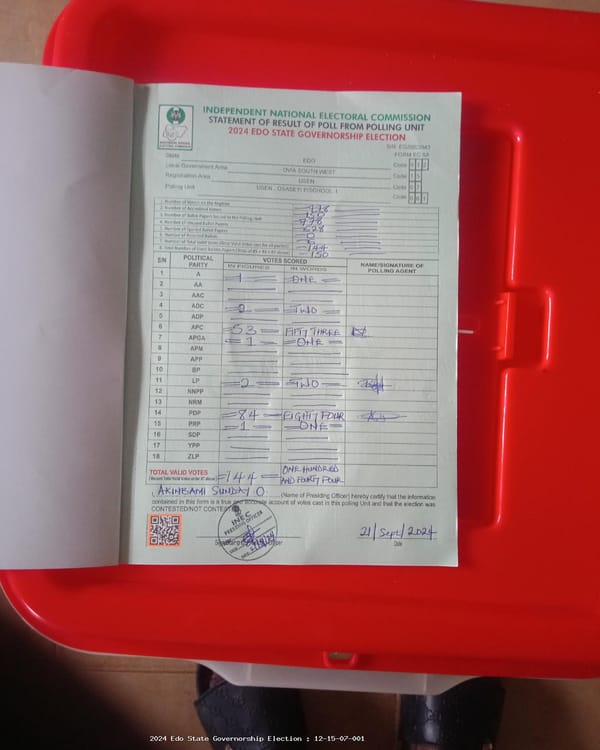 INDEPENDENT NATIONAL ELECTORAL COMMISSION
STATEMENT OF RESULT OF POLL FROM POLLING UNIT
2024 EDO STATE GOVERNORSHIP ELECTION
FORM EC 8A
State EDO Code 1 2
Local Government Area OVIA SOUTH WEST Code 1 5
Registration Area USEN Code 0 7
Polling Unit Code 0 0 1
1. Number of Voters on the Register
2. Number of Accredited Voters
3. Number of Ballot Papers Issued to the Polling Unit
4. Number of Unused Ballot Papers
5. Number of Spoiled Ballot Papers
6. Number of Rejected Ballots
=144=
=150
S/N POLITICAL PARTY VOTES SCORED NAME/SIGNATURE OF POLLING AGENT
IN FIGURES IN WORDS
1 A 1 ONE
2 AA
3 AAC
4 ADC 2 TWO
5 ADP
6 APC 53 FIFTY THREE
7 APGA 1 ONE
8 APM
9 APP
10 BP
11 LP 2 TWO
12 NNPP
13 NRM
14 PDP 84 EIGHTY FOUR
15 PRP 1 ONE
16 SDP
17 YPP
18 ZLP
TOTAL VALID VOTES =144= ONE HUNDRED AND FOURTY FOUR
I, AKINBAMI SUNDAY O. (Name of Presiding Officer) hereby certify that the information
contained in this form is a true and accurate account of votes cast in this polling Unit and that the election was
CONTESTED/NOT CONTESTED
INEC
PRESIDING OFFICER
21/Sept/2024
Date
2024 Edo State Governorship Election : 12-15-07-001